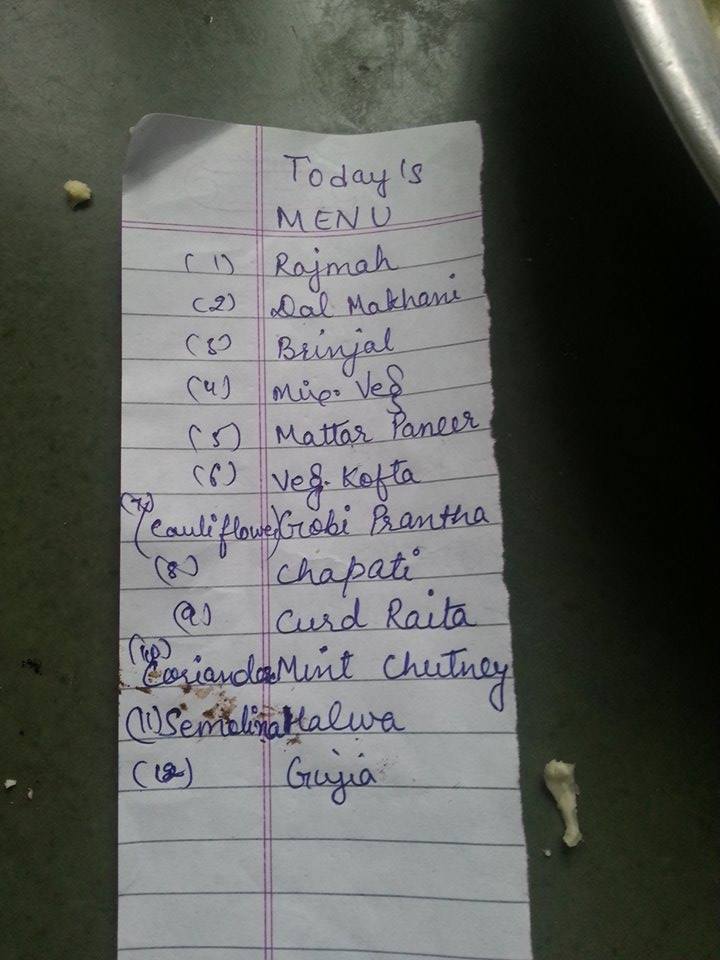 Today's
MENU
(1) Rajmah
(2) Dal Makhani
(3) Brinjal
(4) Mix. Veg
(5) Mattar Paneer
(6) Veg. Kofta
(7) (Cauliflower) Gobi Prantha
(8) Chapati
(9) Curd Raita
(10) Coriander Mint Chutney
(11) Semolina Halwa
(12) Gujia